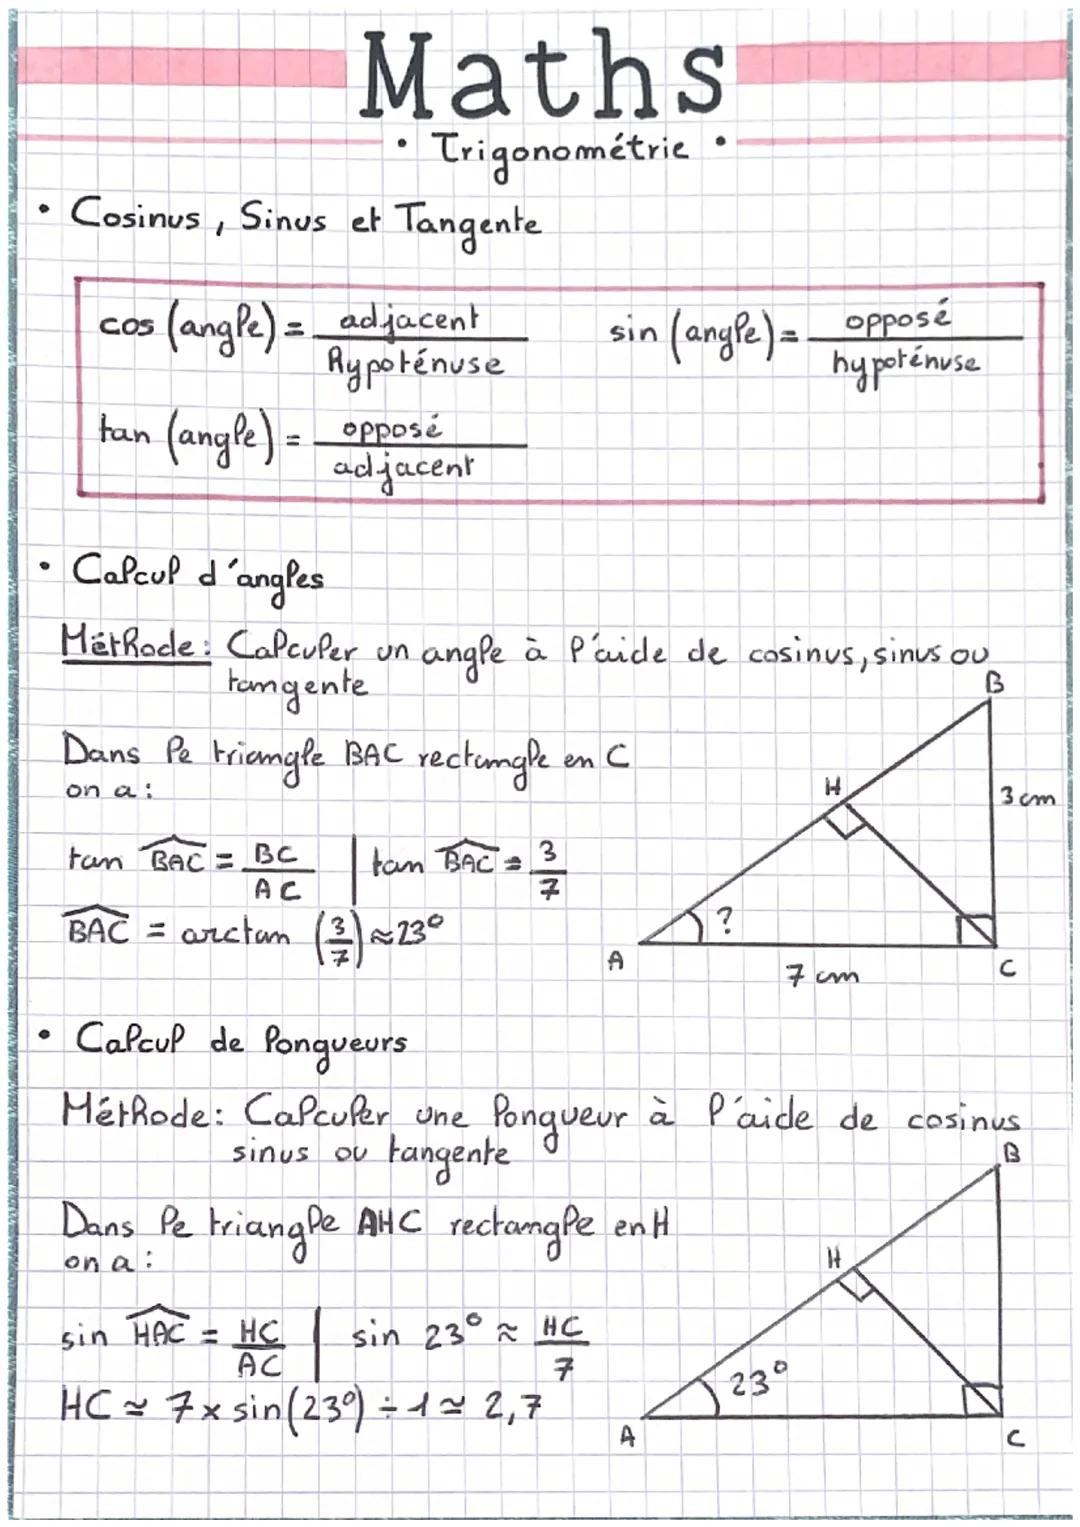 Maths
• Trigonométrie •
• Cosinus, Sinus et Tangente
cos (angle) = adjacent / hypoténuse
sin (angle) = opposé / hypoténuse
tan (angle) = opposé / adjacent
• Calcul d'angles
Méthode: Calculer un angle à l'aide de cosinus, sinus ou
tangente
Dans le triangle BAC rectangle en C
on a:
tan BAC = BC / AC | tan BAC = 3 / 7
BAC = arctan (3/7) ≈ 23°
B
H
3 cm
?
A
7 cm
C
• Calcul de longueurs
Méthode: Calculer une longueur à l'aide de cosinus
sinus ou tangente
Dans le triangle AHC rectangle en H
on a:
sin HAC = HC / AC | sin 23° ≈ HC / 7
HC ≃ 7 x sin(23°) ÷ 1 ≃ 2,7
B
H
23°
A
C